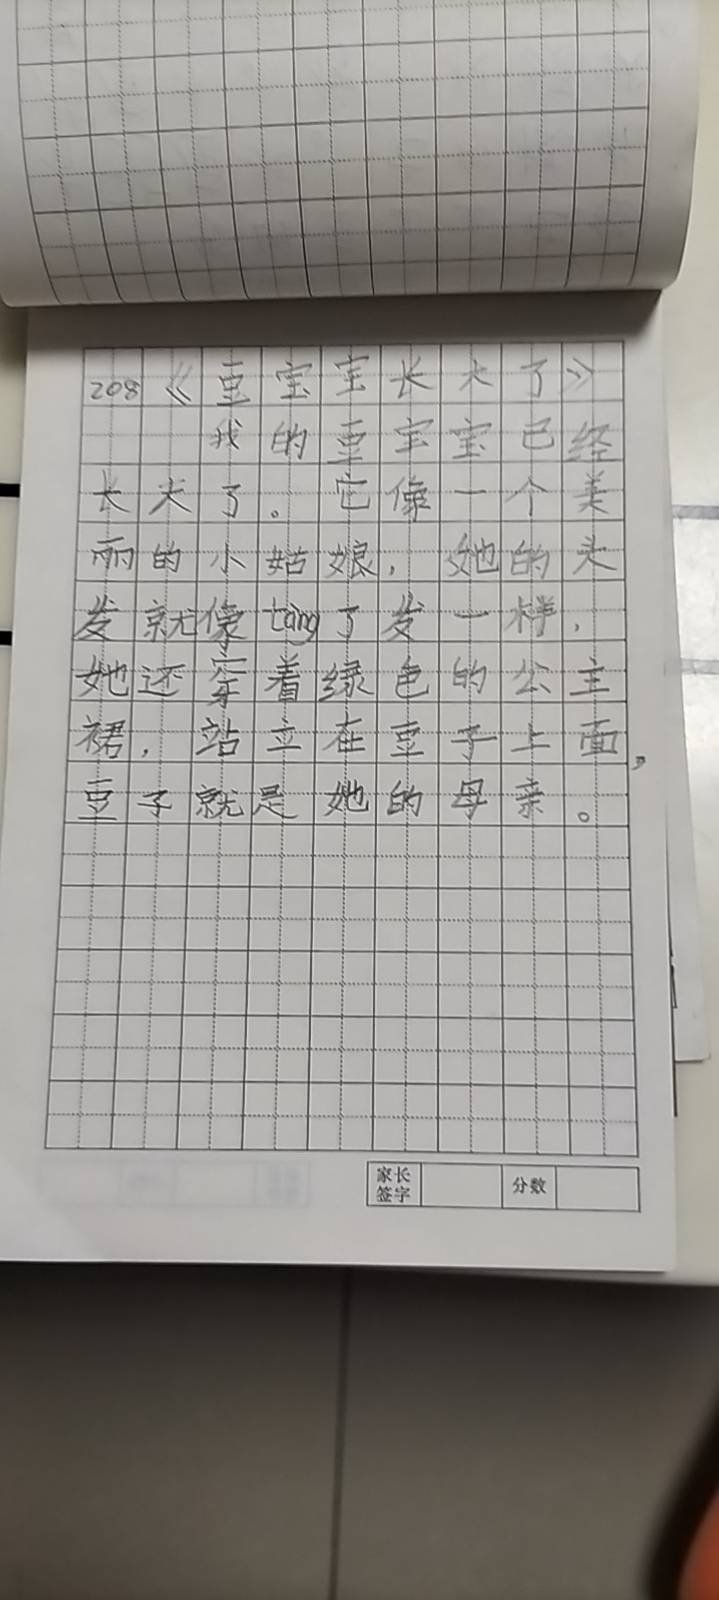 208《豆宝宝长大了》
我的豆宝宝已经
长大了。它像一个美
丽的小姑娘，她的头
发就像tàng了发一样，
她还穿着绿色的公主
裙，站立在豆子上面，
豆子就是她的母亲。
家长
签字
分数